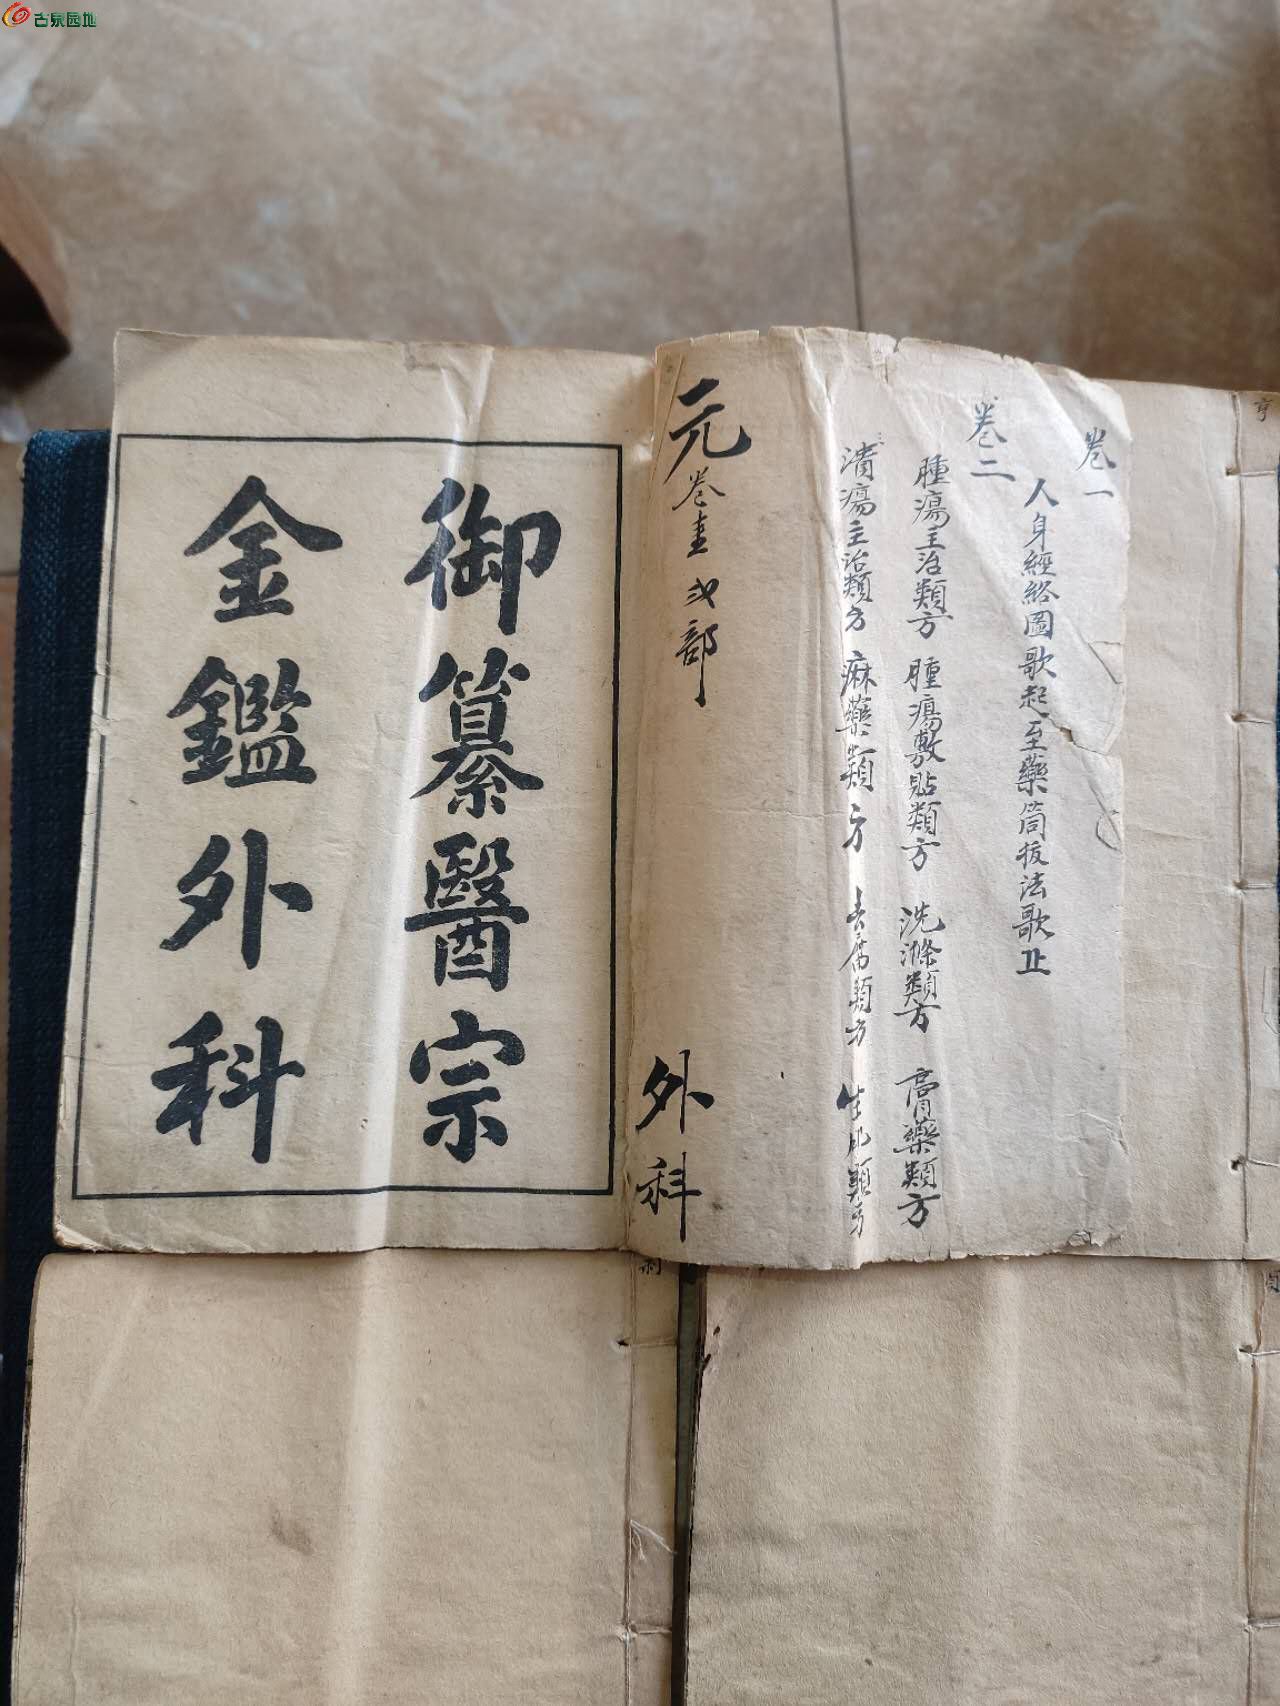 古泉园地
卷一
人身經絡圖歌起至藥筒拔法歌止
卷二
腫瘍主治類方 腫瘍敷貼類方 洗滌類方 膏藥類方
潰瘍主治類方 麻藥類方 去腐類方 生肌類方
元卷壹弍部
外科
御纂醫宗
金鑑外科
亨
利